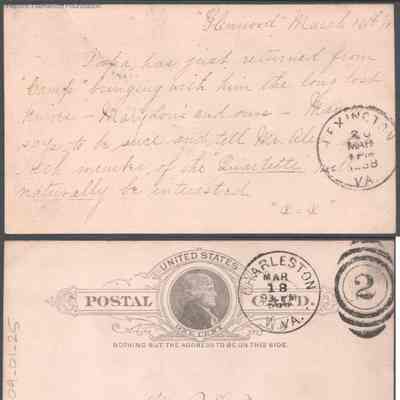 "Glenwood" March 16th
Papa has just returned from
"Camp" bringing with him the long lost
knives - Marydon's and ours - May
says to be sure and tell Mr.
member of the "Quartette"
naturally be interested.
LEXINGTON
20
MAR
1888
VA.
UNITED STATES
POSTAL CARD.
ONE CENT
NOTHING BUT THE ADDRESS TO BE ON THIS SIDE.
CHARLESTON
MAR
18
W.VA.
2
09-01-25